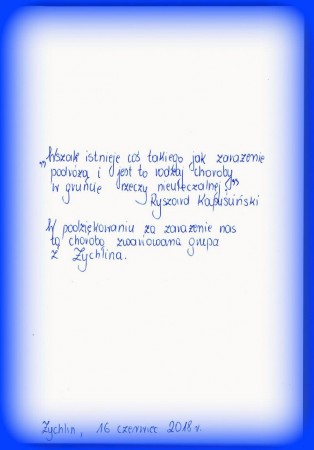 „Wszak istnieje coś takiego jak zarażenie
podróżą i jest to rodzaj choroby
w gruncie rzeczy nieuleczalnej!”
Ryszard Kapuściński
W podziękowaniu za zarażenie nas
tą chorobą zwariowana grupa
z Żychlina.
Żychlin, 16 czerwiec 2018 r.